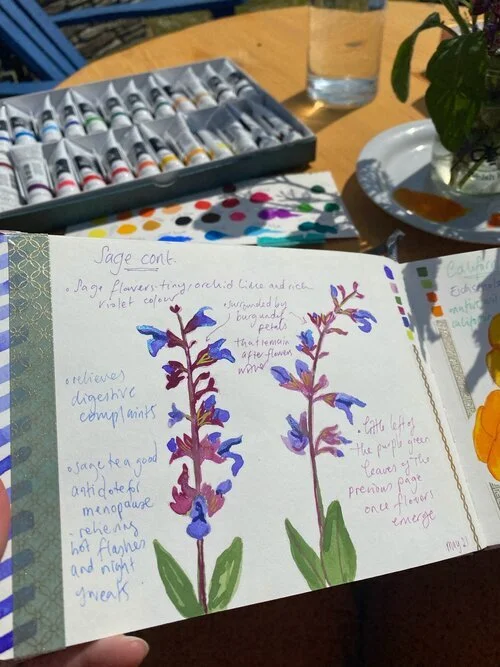 Sage cont.
• Sage flowers tiny, orchid like and rich
violet colour
• surrounded by
burgundy
petals
that remain
after flower
• relieves
digestive
complaints
• sage tea a good
antidote for
menopause
- relieving
hot flashes
and night
sweats
• little left of
the purple green
leaves of the
previous page
once flowers
emerge
May 21